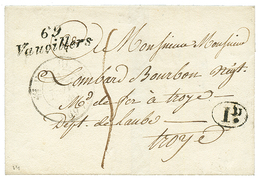 69
Vauvillers
A Monsieur Monsieur
Lombard Bourbon Négt.
Md. de fer à troye
Dépt. de Laube
troye
1D